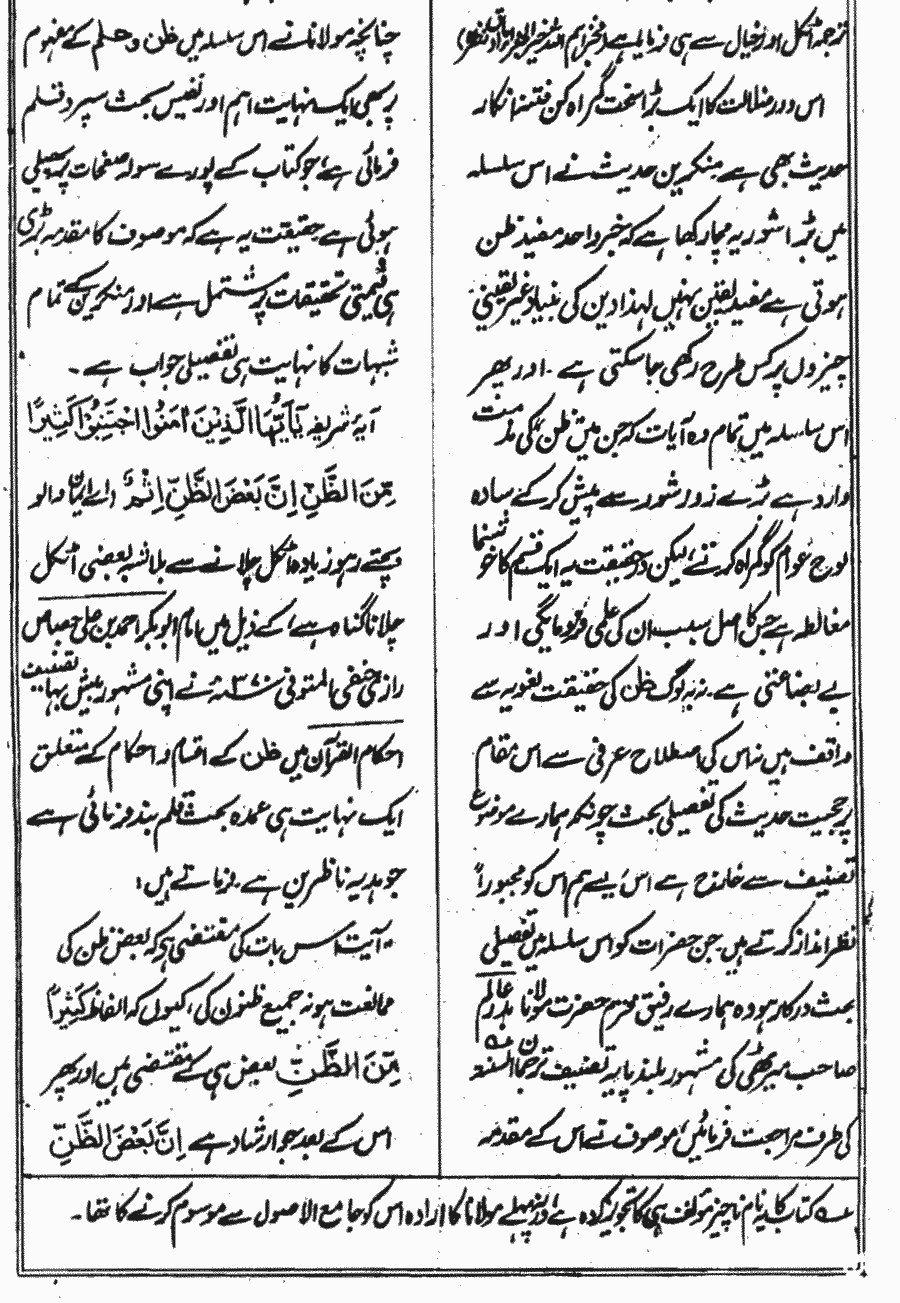 ترجمہ اٹکل اور خیال سے ہی فرمایا ہے
اس دور ضلالت کا ایک بڑا سخت گمراہ کن فتنہ انکار
حدیث بھی ہے منکرین حدیث نے اس سلسلہ
میں بڑا شور یہ مچا رکھا ہے کہ خبر واحد مفید ظن
ہوتی ہے مفید یقین نہیں لہذا دین کی بنیاد غیر یقینی
چیزوں پر کس طرح رکھی جا سکتی ہے ۔ اور پھر
اس سلسلہ میں تمام وہ آیات کہ جن میں ظن کی مذمت
وارد ہے بڑے زور شور سے پیش کر کے سادہ
لوح عوام کو گمراہ کرتے، لیکن درحقیقت یہ ایک قسم کا خوشنما
مغالطہ ہے جن کا اصل سبب ان کی علمی فرومایگی اور
بے بضاعتی ہے ۔ نہ یہ لوگ ظن کی حقیقت لغویہ سے
واقف ہیں نہ اس کی اصطلاح عرفی سے اس مقام
پر حجیت حدیث کی تفصیلی بحث چونکہ ہمارے موضوع
تصنیف سے خارج ہے اس لیے ہم اس کو مجبوراً
نظر انداز کرتے ہیں جن حضرات کو اس سلسلہ میں تفصیلی
بحث درکار ہو وہ ہمارے رفیق محترم حضرت مولانا بدر عالم
صاحب میرٹھی کی مشہور بلند پایہ تصنیف ترجمان السنہ
کی طرف مراجعت فرمائیں، موصوف نے اس کے مقدمہ
چنانچہ مولانا نے اس سلسلہ میں ظن و علم کے مفہوم
پر بھی ایک نہایت اہم اور نفیس بحث سپرد قلم
فرمائی ہے، جو کتاب کے پورے سولہ صفحات پر پھیلی
ہوئی ہے حقیقت یہ ہے کہ موصوف کا مقدمہ بڑی
ہی قیمتی تحقیقات پر مشتمل ہے اور منکرین کے تمام
شبہات کا نہایت ہی تفصیلی جواب ہے ۔
آیۂ شریفہ يٰٓاَيُّهَا الَّذِيْنَ اٰمَنُوا اجْتَنِبُوْا كَثِيْرًا
مِّنَ الظَّنِّ اِنَّ بَعْضَ الظَّنِّ اِثْمٌ (اے ایمان والو
بچتے رہو زیادہ اٹکل چلانے سے بلا شبہ بعضی اٹکل
چلانا گناہ ہے) کے ذیل میں امام ابو بکر احمد بن علی جصاص
رازی حنفی المتوفی ۳۷۰ھ نے اپنی مشہور بیش بہا تصنیف
احکام القرآن میں ظن کے اقسام و احکام کے متعلق
ایک نہایت ہی عمدہ بحث قلم بند فرمائی ہے
جو ہدیہ ناظرین ہے ۔ فرماتے ہیں:
"آیت اس بات کی مقتضی ہے کہ بعض ظن کی
ممانعت ہو نہ جمیع ظنون کی، کیوں کہ الفاظ كَثِيْرًا
مِّنَ الظَّنِّ بعض ہی کے مقتضی ہیں اور پھر
اس کے بعد جو ارشاد ہے اِنَّ بَعْضَ الظَّنِّ
؎ کتاب کا یہ نام ناچیز مؤلف ہی کا تجویز کردہ ہے ورنہ پہلے مولانا کا ارادہ اس کو جامع الاصول سے موسوم کرنے کا تھا۔